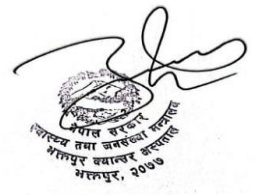 नेपाल सरकार
स्वास्थ्य तथा जनसंख्या मन्त्रालय
भक्तपुर क्यान्सर अस्पताल
भक्तपुर, २०७७